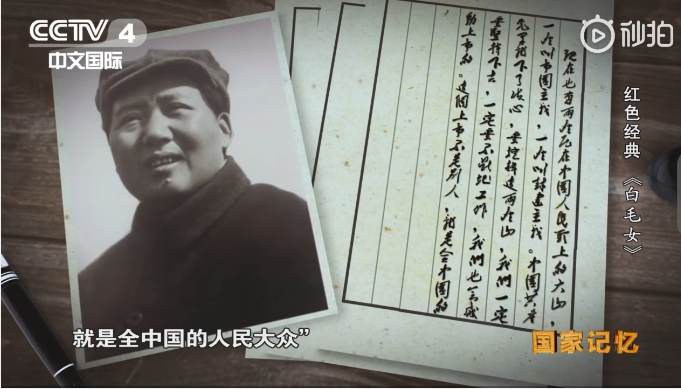 CCTV 4
中文国际
秒拍
红色经典 《白毛女》
现在也有两座压在中國人民頭上的大山，
一座叫帝國主義，一座叫封建主義。中國共產
党早就下了决心，要挖掉這两座山，我們一定
要堅持下去，一定要不斷地工作，我們也会感
動上帝的。這個上帝不是别人，就是全中國的
就是全中国的人民大众”
国家记忆